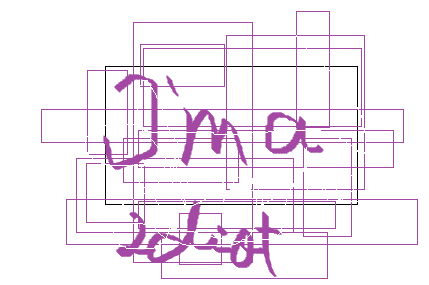 I'm a
idiot